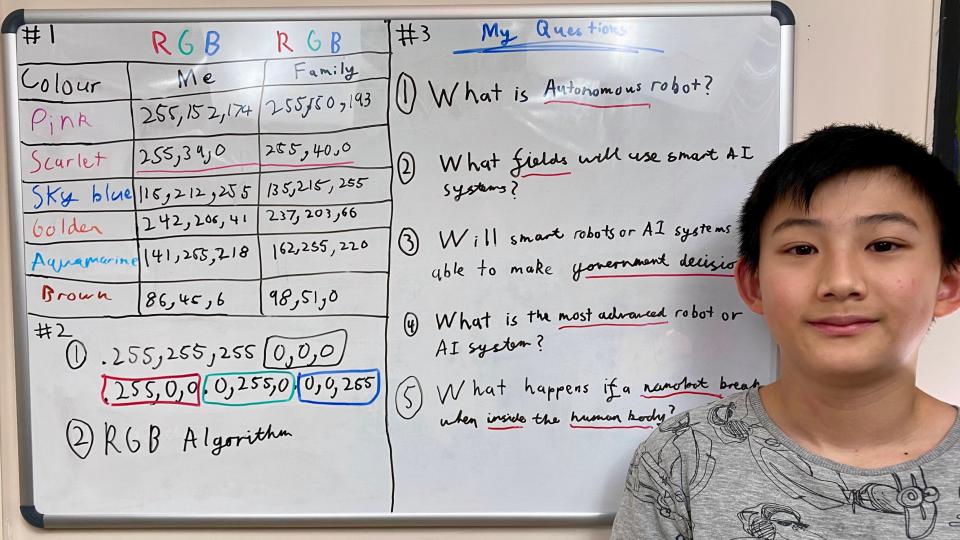 #1 R G B R G B
Colour Me Family
Pink 255,152,174 255,150,193
Scarlet 255,39,0 255,40,0
Sky blue 115,212,255 135,215,255
Golden 242,206,41 237,203,66
Aquamarine 141,255,218 162,255,220
Brown 86,45,6 98,51,0
#2
① .255,255,255 0,0,0
.255,0,0 .0,255,0 .0,0,255
② RGB Algorithm
#3 My Questions
① What is Autonomous robot?
② What fields will use smart AI
systems?
③ Will smart robots or AI systems
able to make government decisio
④ What is the most advanced robot or
AI system?
⑤ What happens if a nanobot break
when inside the human body?